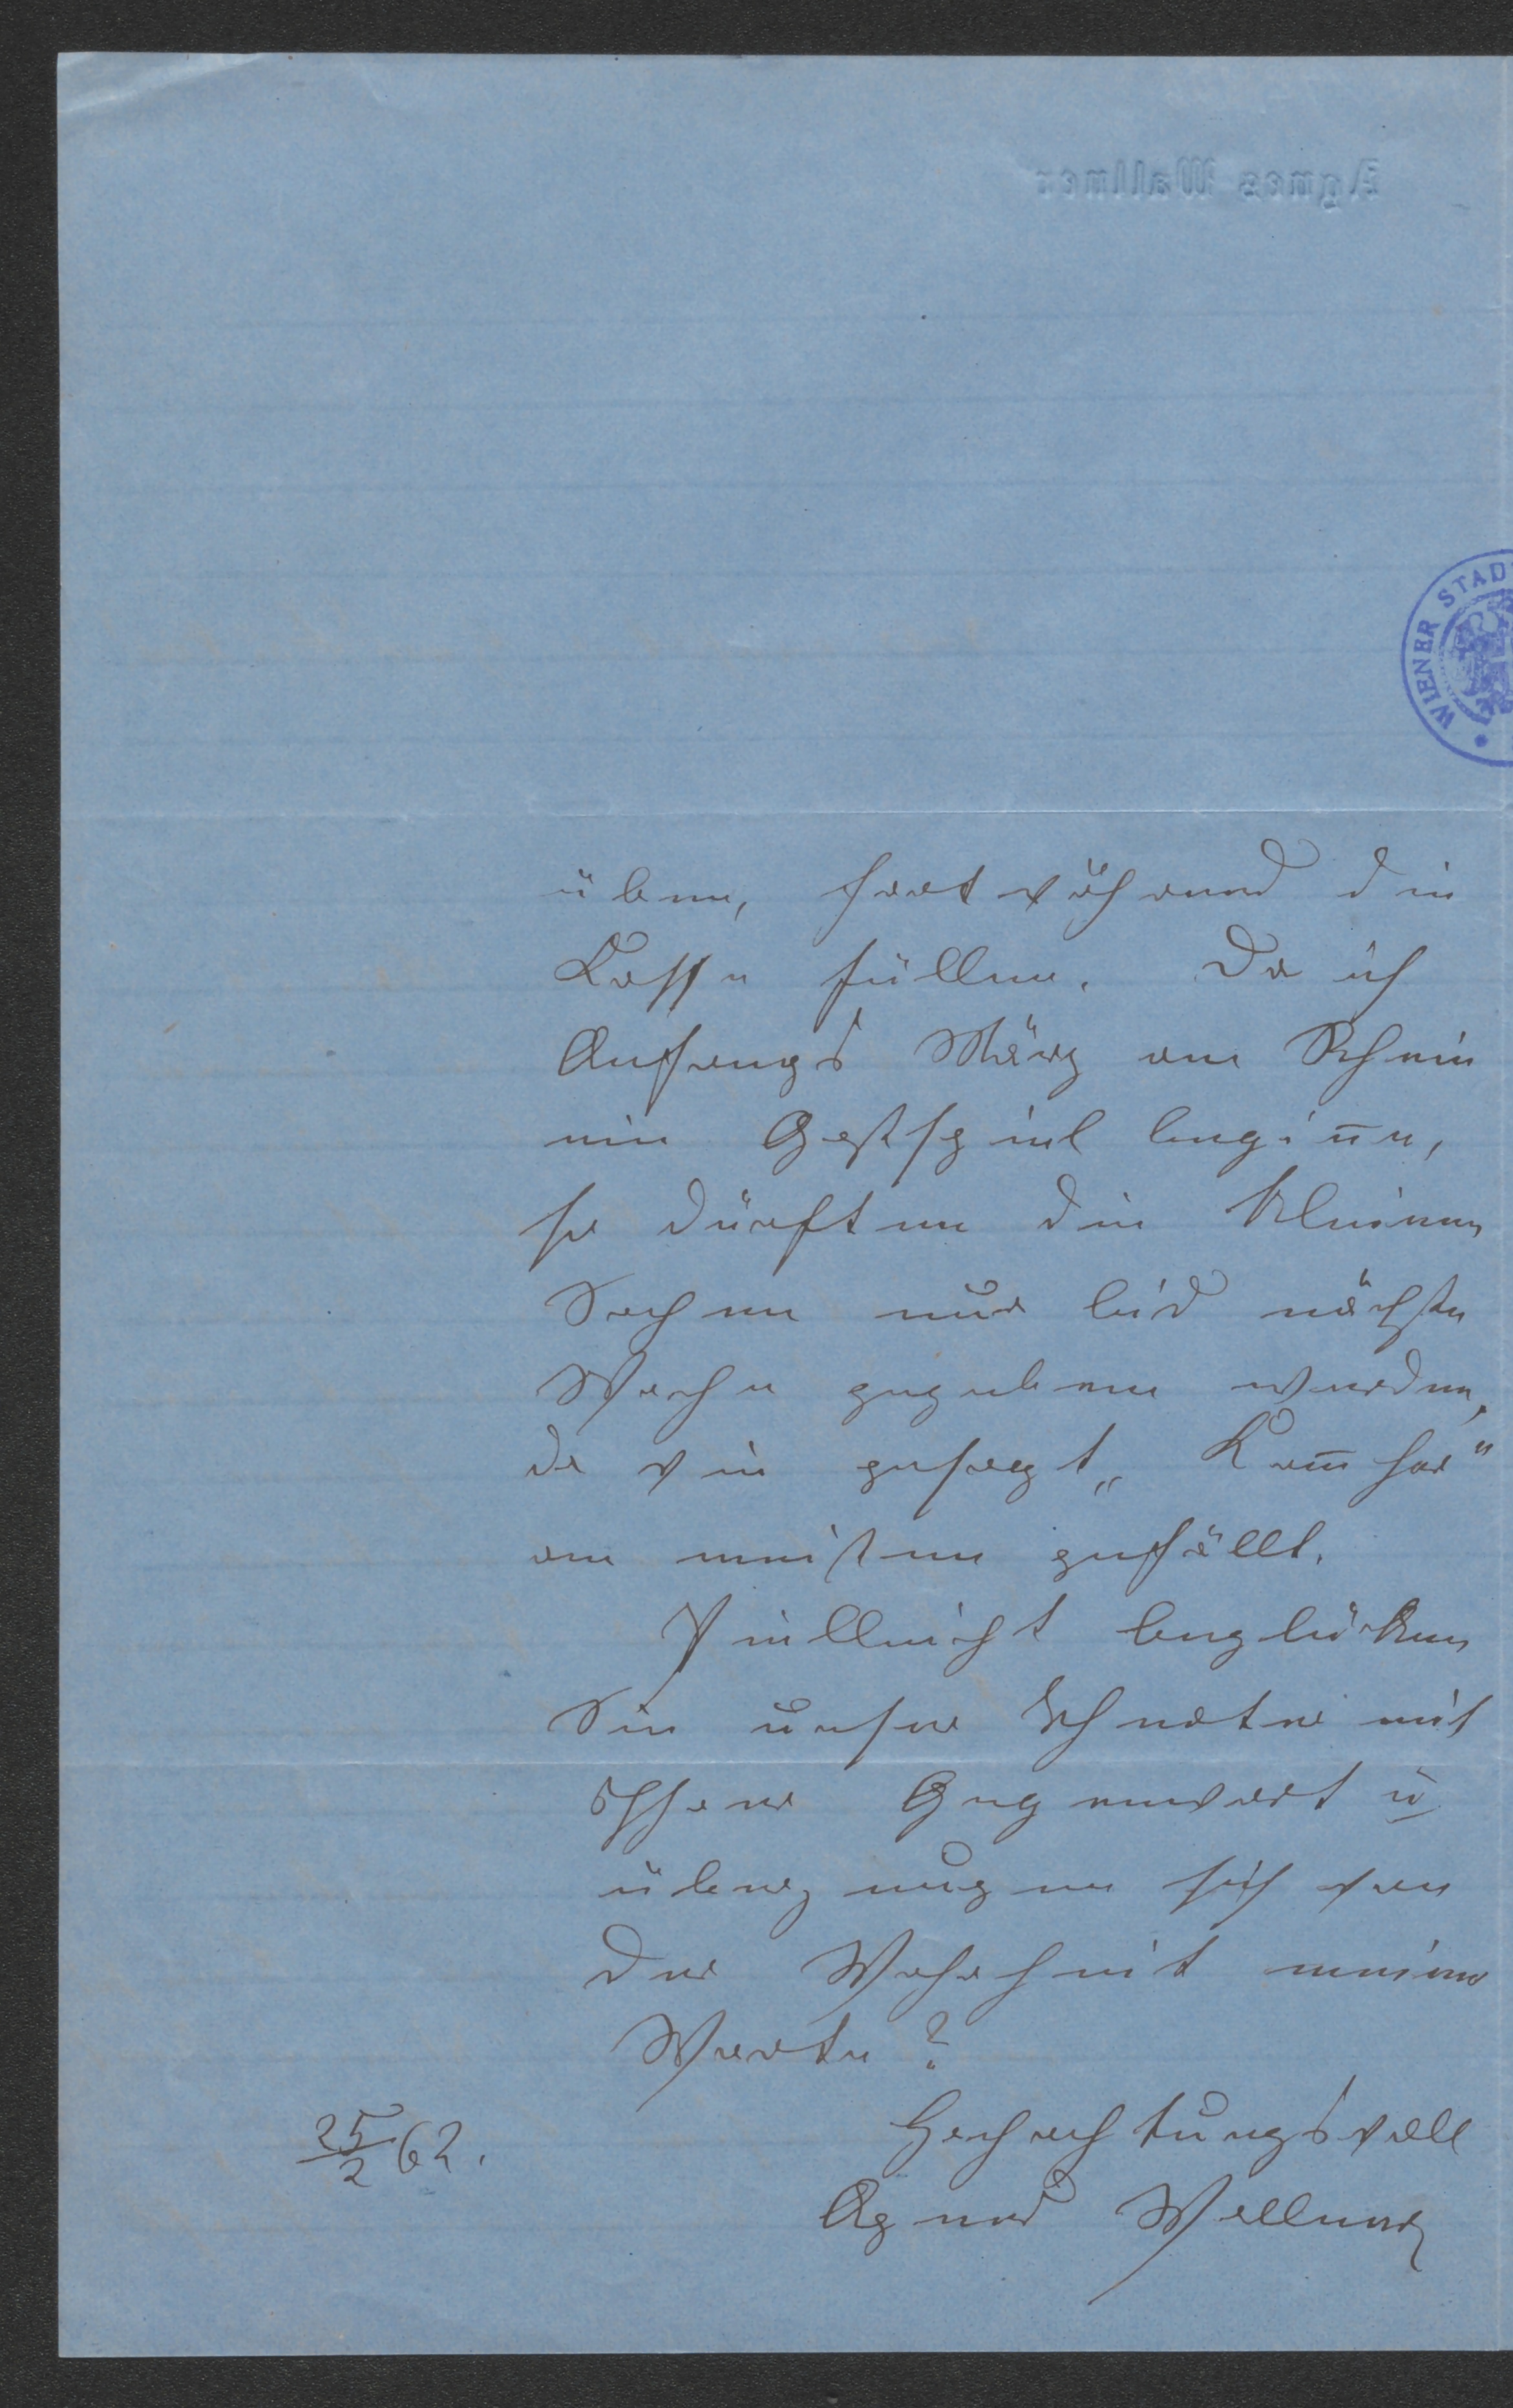 Agnes Wallner
WIENER STAD
üben, fortwährend die
Kasse füllen. Da ich
Anfangs März am Rhein
ein Gastspiel begin̅e,
so dürften die kleinen
Sachen nur bis nächste
Woche gegeben werden,
da wie gesagt „Kom̅ her"
am meisten gefällt.
Vielleicht beglücken
Sie unser Theater mit
Ihrer Gegenwart u
überzeugen sich von
der Wahrheit meiner
Worte?
Hochachtungsvoll
25/2 62.
Agnes Wallner